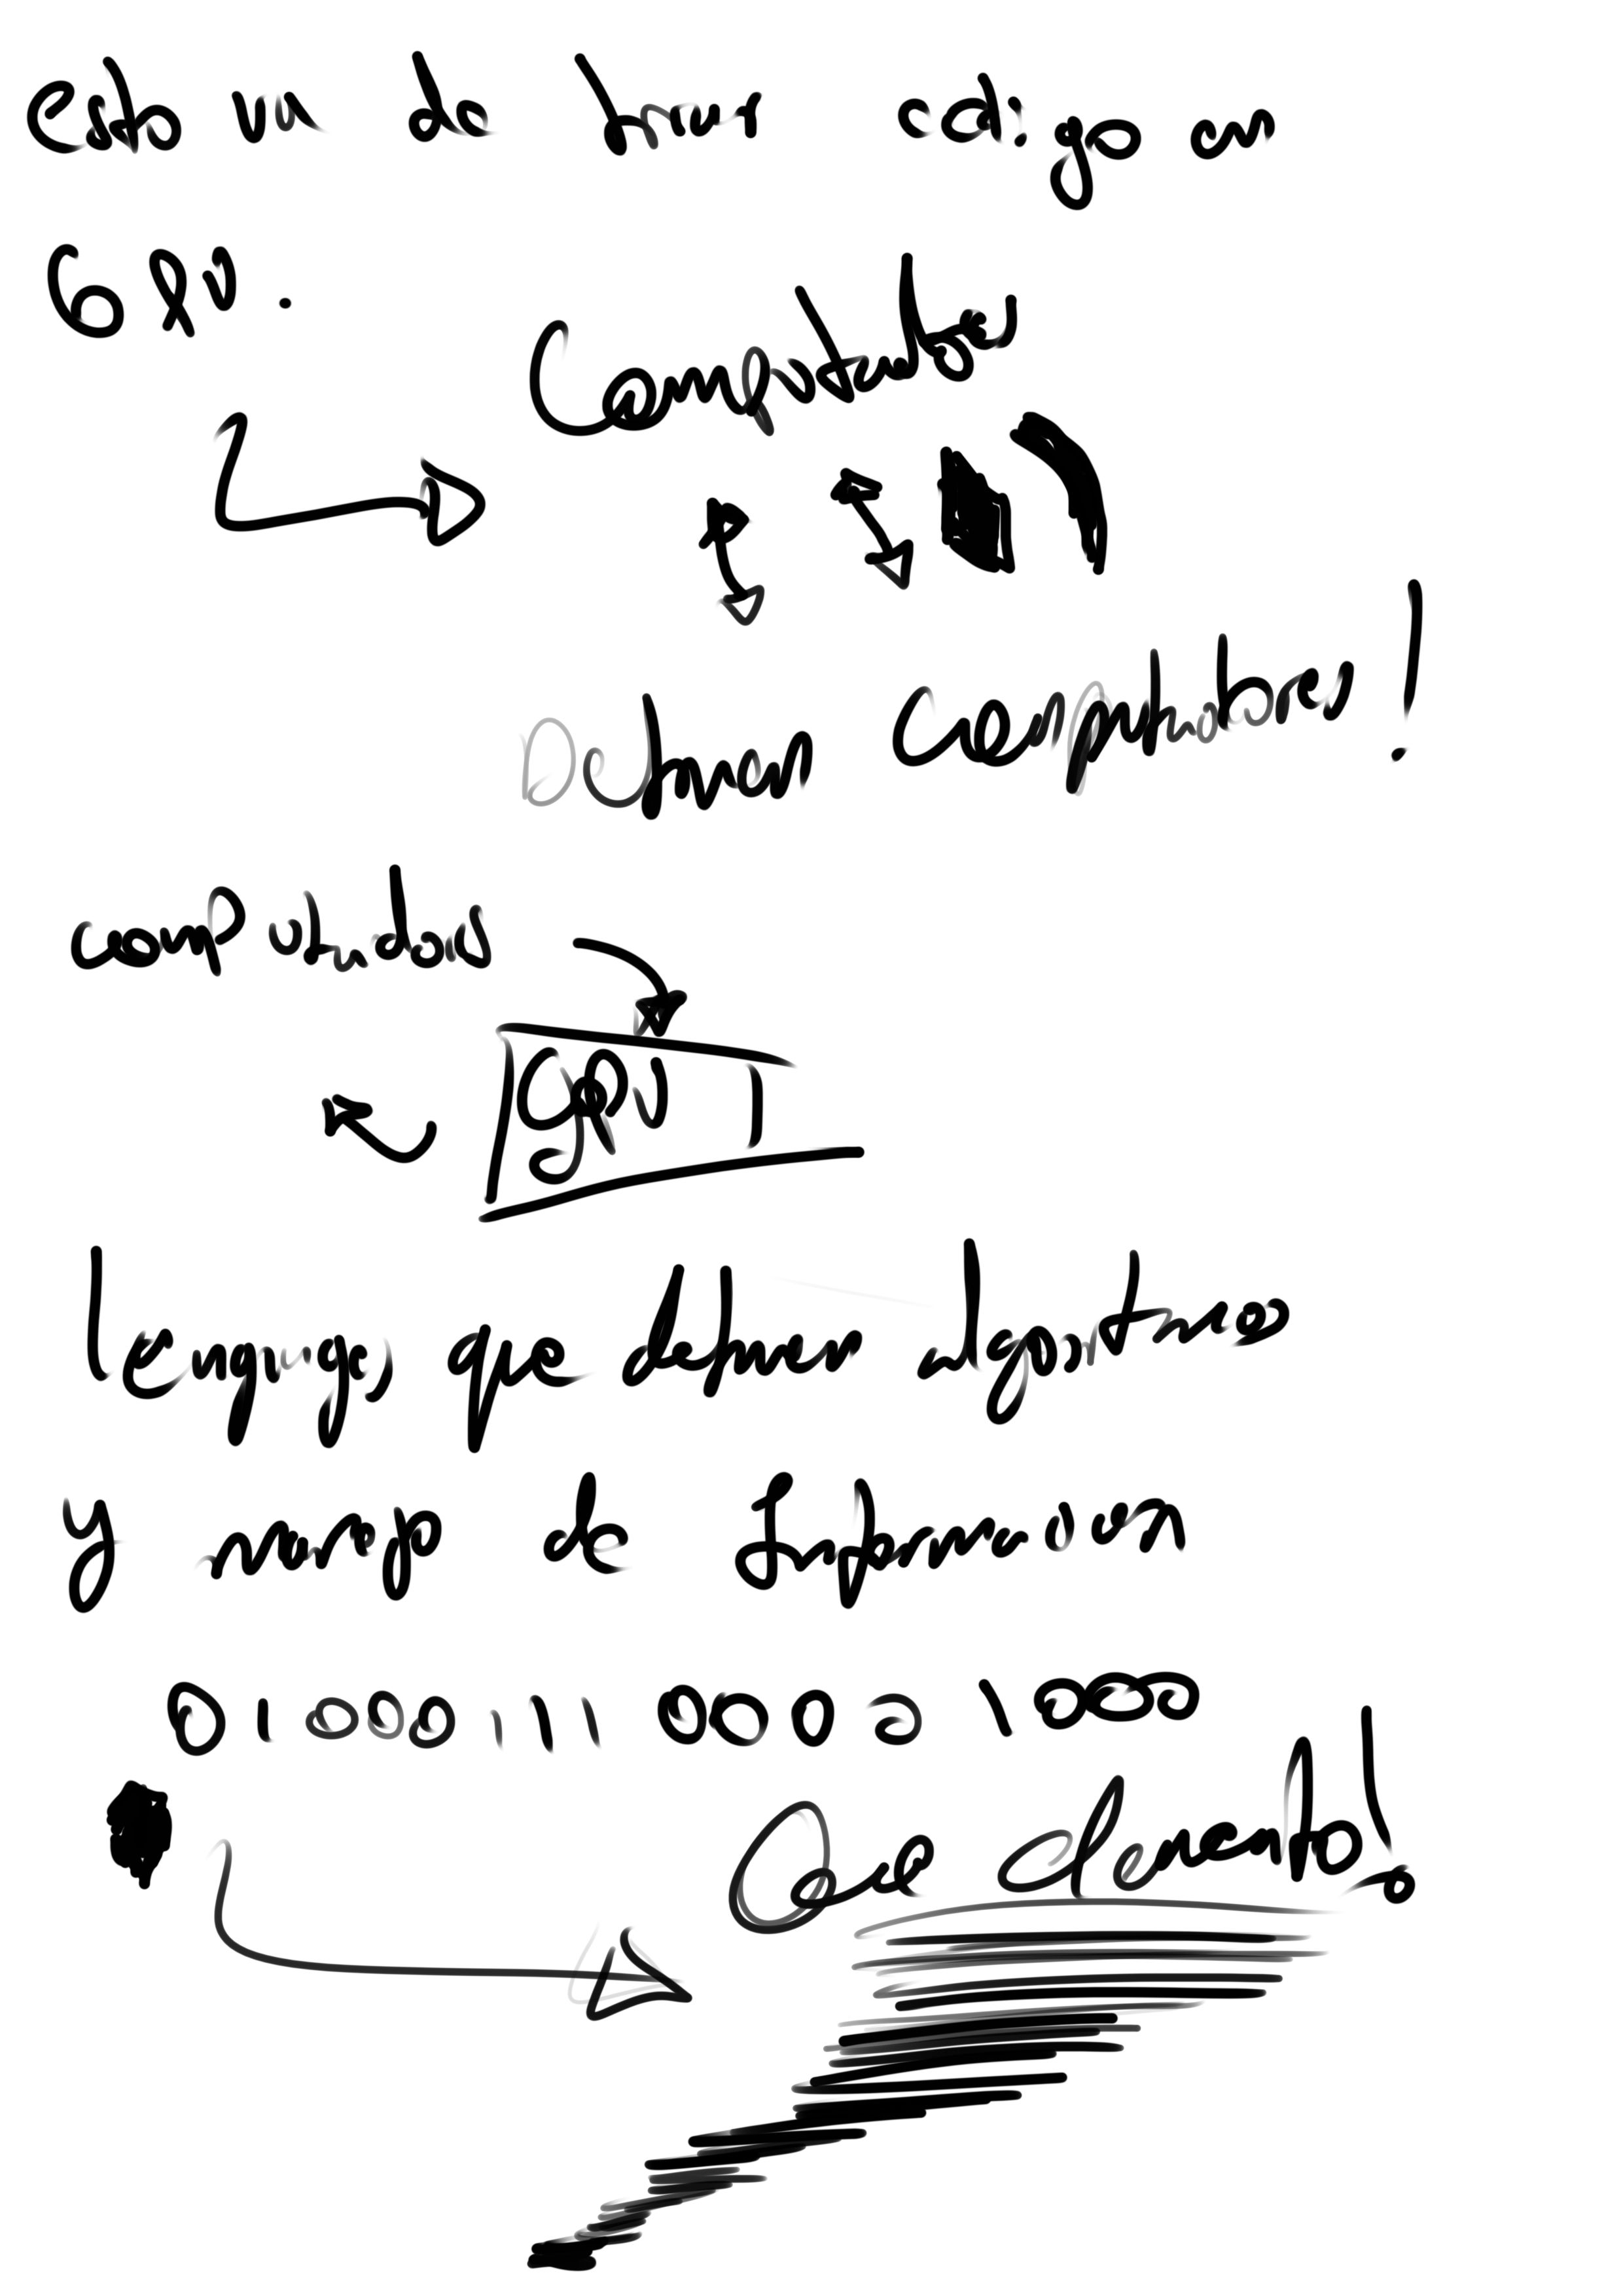 esto va de tirar codigo en
GPU.
Computadores
Definen computadores!
computadores
GPU
lenguajes que definen algoritmos
y manejo de Informacion
01000111000010000
Que demento!